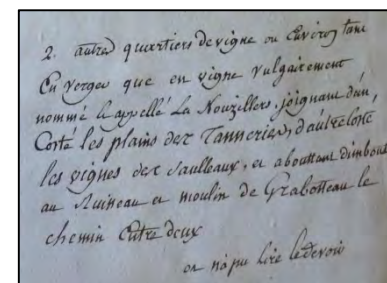 2. autres quartiers de vigne ou Environ tant
En verger que en vigne vulgairement
nommé & appellé La Nouzillers, joignant d'un
Costé les plains des Tanneries, d'autre costé
les vignes des saulleaux, et abouttant d'un bout
au Ruineau et moulin de Grabotteau le
chemin Entre deux
on n'a pu lire le devoir